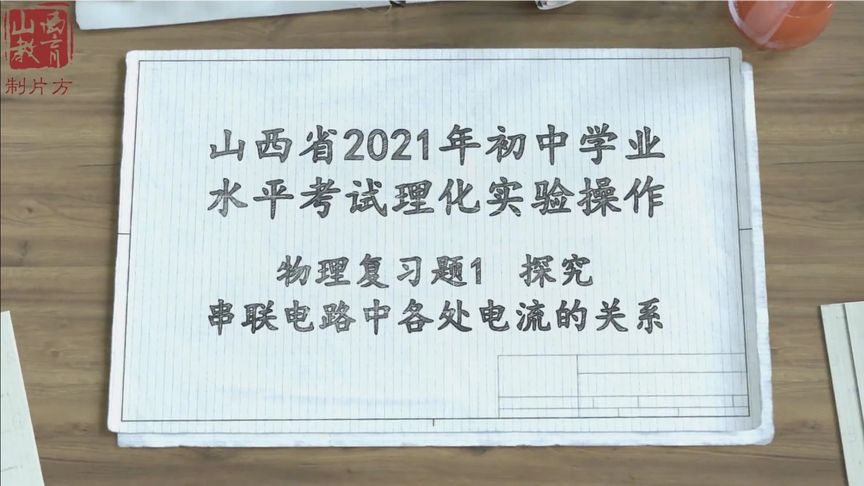 山西教育
制片方
山西省2021年初中学业
水平考试理化实验操作
物理复习题1 探究
串联电路中各处电流的关系